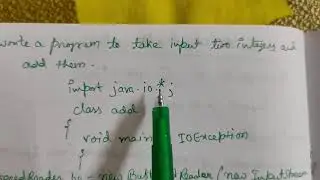 write a program to take input two integers and
add them.
import java.io.*;
class add
{
void main IOException
{
= new Buff Reader (new InputStream